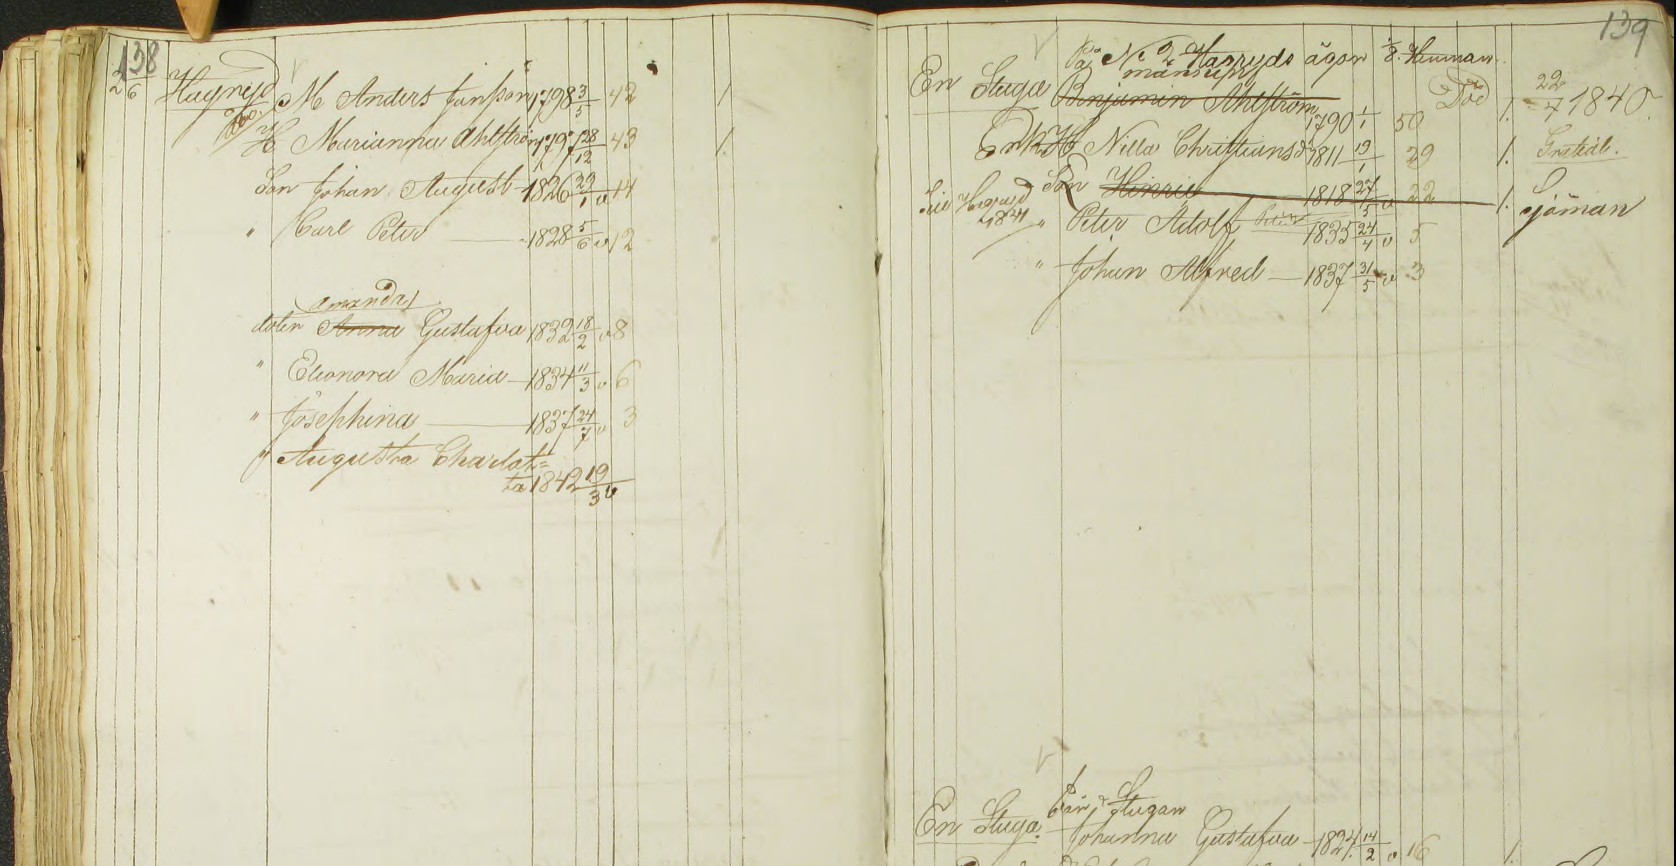 138
2/6 Hagryd M Anders Jansson 1798 3/5 42 /.
Åbo. H Marianna Ahlström 1797 28/12 43 /.
Son Johan August 1826 29/1 v 14
" Carl Peter 1828 5/6 v 12
Amanda
dotn Anna Gustafva 1832 18/2 v 8
" Eleonora Maria 1834 11/3 v 6
" Josephina 1837 24/7 v 3
" Augusta Charlot=
ta 1842 19/3 v
139
På No 2 Hagryds ägor 1/8. Heman.
En Stuga
Benjamin Ahlström 1790 1/1 50 Död /. 22/7 1840.
Enk H Nilla Christiansdr 1811 19/1 29 /. Gratial.
Son Henric 1818 27/5 v 22 /. Sjöman
Hagryd 1841 " Peter Adolf 1835 24/4 v 5
" Johan Alfred 1837 31/5 v 3
En Stuga Stugan
Johanna Gustafva 1824 14/2 v 16 /.